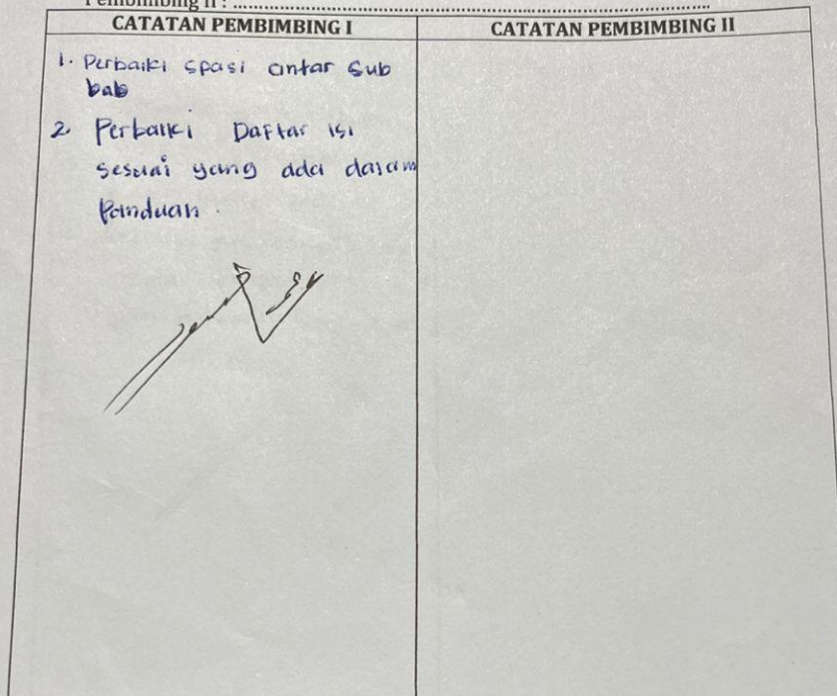 Pembimbing II : ........................................................................
CATATAN PEMBIMBING I
CATATAN PEMBIMBING II
1. Perbaiki spasi antar sub
bab
2. Perbaiki Daftar isi
sesuai yang ada dalam
Panduan.